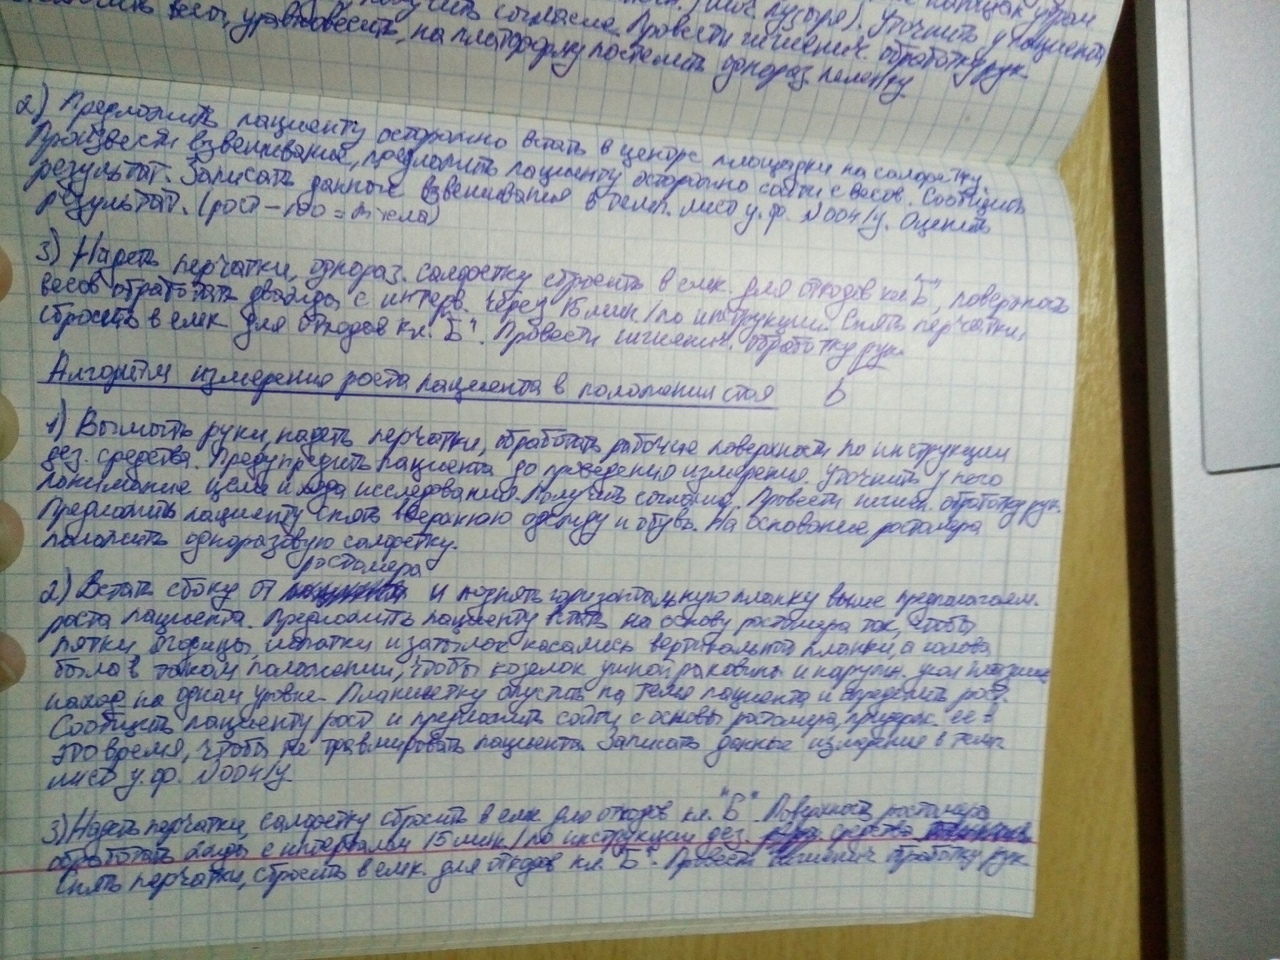 получить согласие. Провести гигиенич. обработку рук.
весы, уравновесить, на платформу постелить однораз. пеленку.
2) Предложить пациенту осторожно встать в центре площадки на салфетку.
Произвести взвешивание, предложить пациенту осторожно сойти с весов. Сообщить
результат. Записать данные взвешивания в темп. лист у.ф. N004/у. Оценить
результат. (рост – 100 = m тела)
3) Надеть перчатки, однораз. салфетку сбросить в емк. для отходов кл. "Б", поверхность
весов обработать дважды с интерв. через 15 мин/по инструкции. Снять перчатки,
сбросить в емк для отходов кл. "Б". Провести гигиенич. обработку рук.
Алгоритм измерение роста пациента в положении стоя Б
1) Вымыть руки, надеть перчатки, обработать рабочие поверхности по инструкции
дез. средства. Предупредить пациента до проведения измерения. Уточнить у него
понимание цели и хода исследования. Получить согласие. Провести гигиен. обработку рук.
Предложить пациенту снять верхнюю одежду и обувь. На основание ростомера
положить одноразовую салфетку.
ростомера
2) Встать сбоку от и поднять горизонтальную планку выше предполагаем.
роста пациента. Предложить пациенту встать на основу ростомера так, чтобы
пятки, ягодицы, лопатки и затылок касались вертикальной планки, а голова
была в таком положении, чтобы козелок ушной раковины и наружн. угол глазницы
наход на одном уровне. Планшетку опустить на темя пациента и определить рост.
Сообщить пациенту рост и предложить сойти с основы ростомера, придерж. ее в
это время, чтобы не травмировать пациента. Записать данные измерение в темп
лист у.ф. N004/у.
3) Надеть перчатки, салфетку сбросить в емк для отходов кл. "Б". Поверхность ростомера
обработать 2жды с интервалом 15 мин/по инструкции дез. средства
Снять перчатки, сбросить в емк. для отходов кл. "Б". Провести гигиенич обработку рук